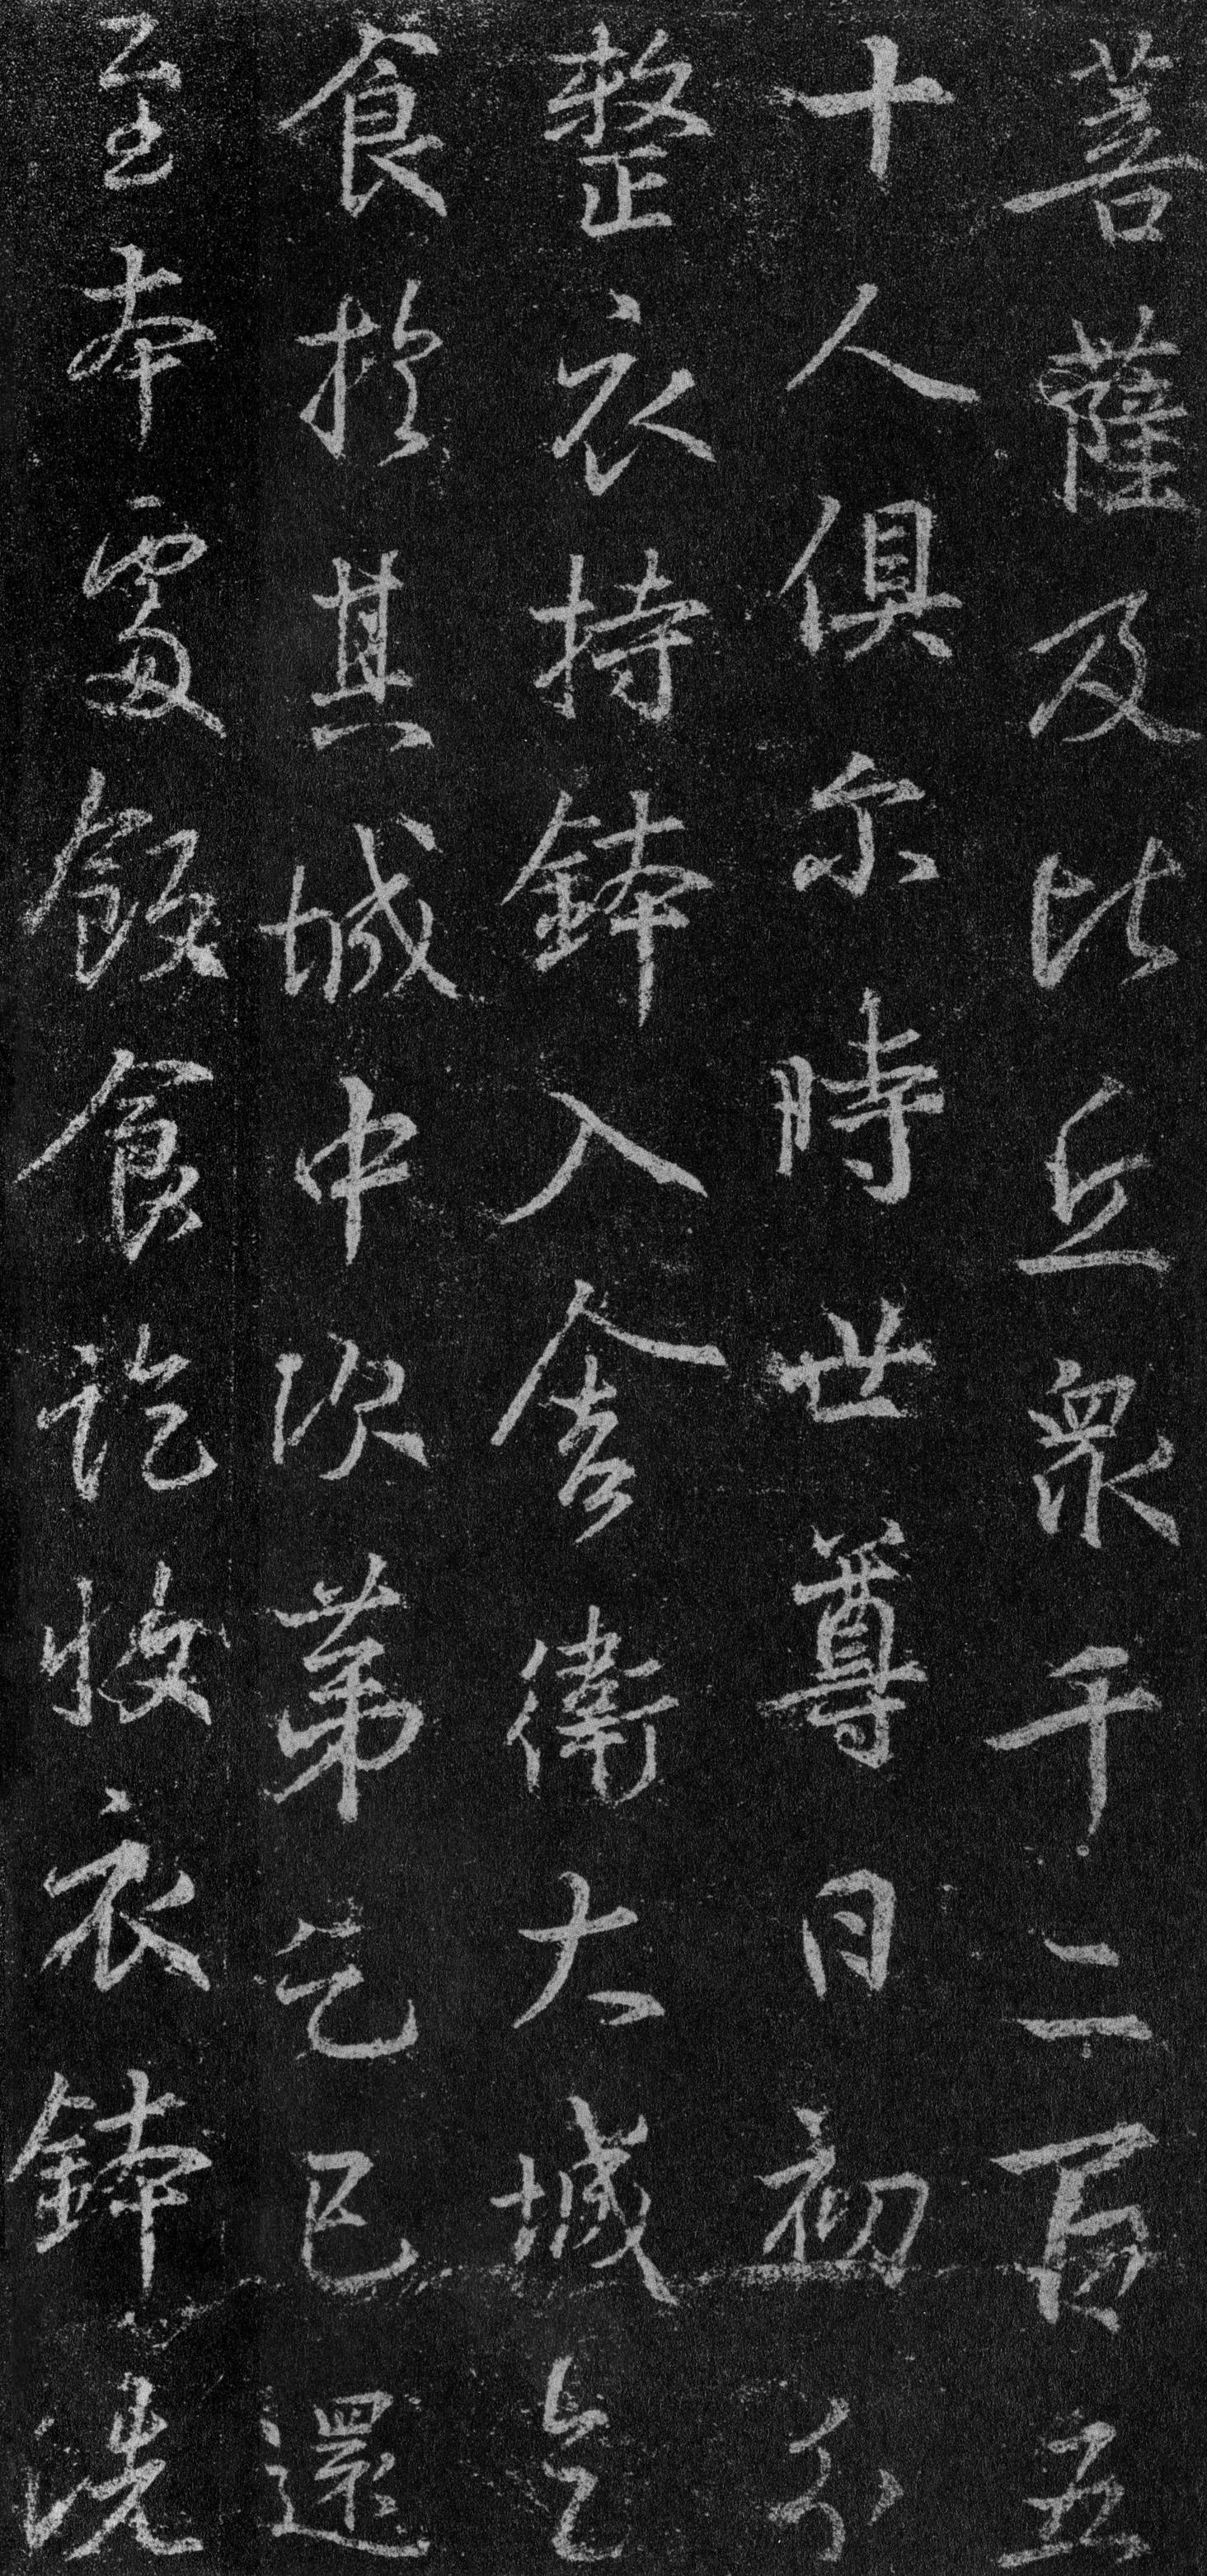 菩薩及比丘衆千二百五
十人俱尒時世尊日初分
整衣持鉢入舍衛大城乞
食於其城中次第乞已還
至本處飯食訖收衣鉢洗